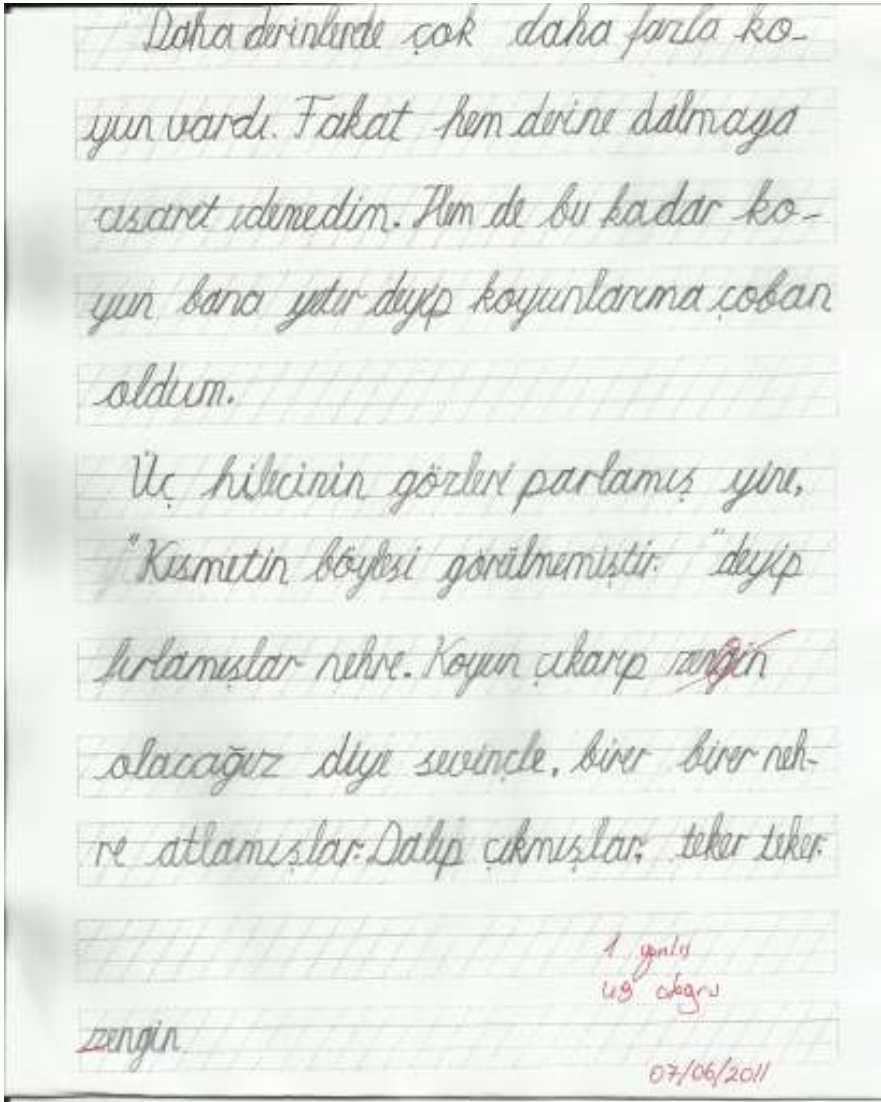 "Daha derinlerde çok daha fazla ko-
yun vardı. Fakat hem derine dalmaya
cısaret idemedim. Hem de bu kadar ko-
yun bana yeter deyip koyunlarıma çoban
oldum.
Üç hilecinin gözleri parlamış yine,
"Kısmetin böylesi görülmemiştir. "deyip
fırlamışlar nehre. Koyun çıkarıp zengin
olacağız diye sevinçle, birer birer neh-
re atlamışlar. Dalıp çıkmışlar, teker teker.
1 yanlış
49 doğru
zengin
07/06/2011